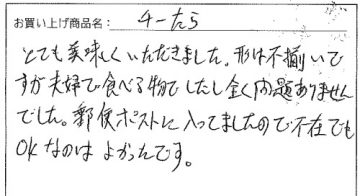 お買い上げ商品名: チーたら
とても美味しくいただきました。形は不揃いで
すが夫婦で食べる物でしたし全く問題ありません
でした。郵便ポストに入ってましたので不在でも
OKなのはよかったです。